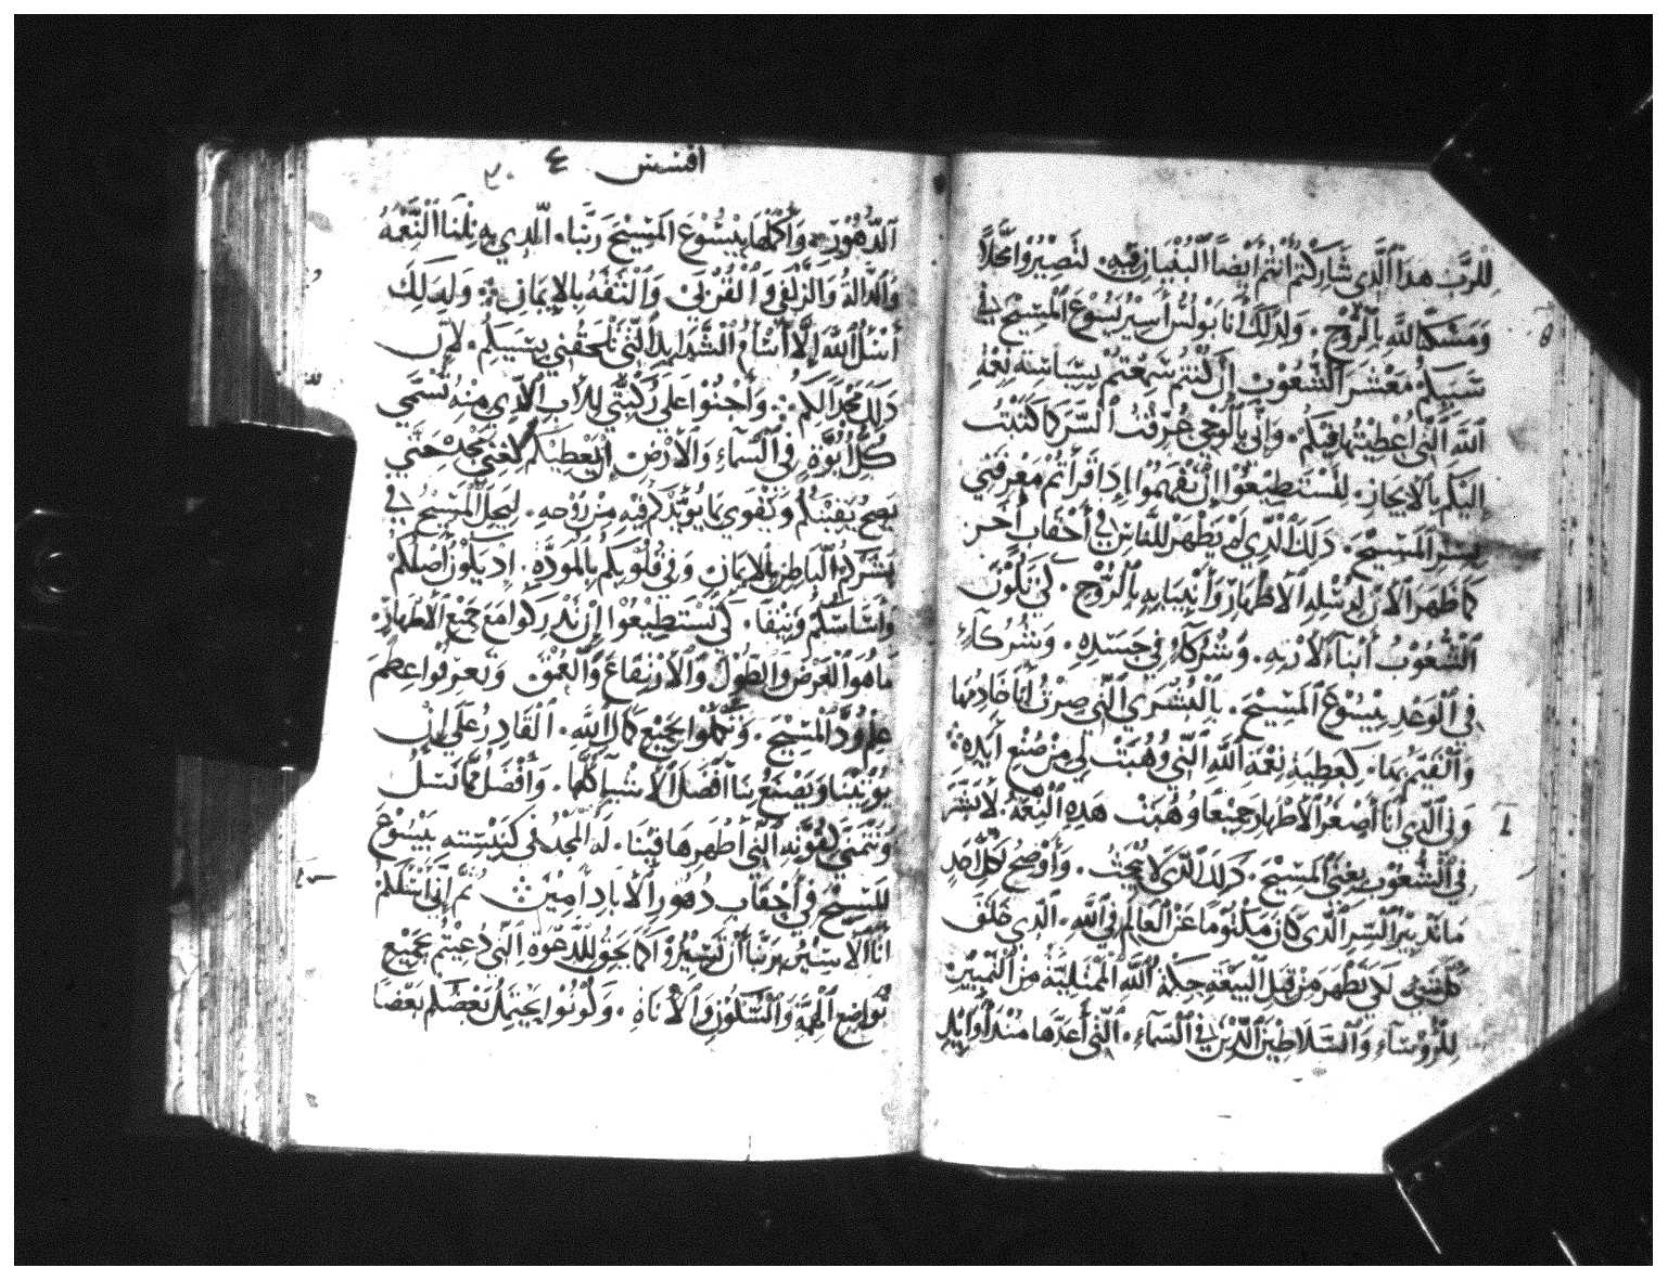 لِلرَّبِّ هَدَا ٱلَّدِي شَارَكْتُمْ أَنْتُمْ أَيْضاً ٱلْبُنْيَانِ فِيهِ. لِتَصِيْرُوْا مَحَلّاً
وَمَسْكَناً للَّهِ بِٱلرُّوْحِ. وَلِدَلِكَ أَنَا بَوْلُسُ أَسِيْرُ يَسُوْعَ ٱلْمَسِيْحِ فِي
سَبَبِكُمْ مَعْشَرَ ٱلشُّعُوْبِ إِنْ كُنْتُمْ سَمِعْتُمْ بِسِيَاسَتِهِ نِعْمَةِ
ٱللَّهِ ٱلَّتِي اُعْطِيْتُهَا فِيْكُمْ. وَإِنِّي بِٱلْوَحْيِ عُرِّفْتُ ٱلسِّرَّ كَمَا كَتَبْتُ
إِلَيْكُمْ بِٱلْإِيْجَازِ. لِتَسْتَطِيْعُوْا إِنْ تَفْهَمُوْا إِدَا قَرَأْتُمْ مَعْرِفَتِي
بِسِرِّ ٱلْمَسِيْحِ. دَلِكَ ٱلَّدِي لَمْ يَظْهَرْ لِلنَّاسِ فِي أَحْقَابٍ أُخَرَ
كَمَا ظَهَرَ ٱلْآنَ لِرُسُلِهِ ٱلْأَطْهَارِ وَأَنْبِيَايِهِ بِٱلرُّوْحِ. كَيْ تَكُوْنَ
ٱلشُّعُوْبُ أَبْنَآءَ لِإِرْثِهِ. وَشُرَكَآءُ فِي جَسَدِهِ. وَشُرَكَآءُ
فِي ٱلْوَعْدِ بِيَسُوْعَ ٱلْمَسِيْحِ. بِٱلْبُشْرَي ٱلَّتِي صِرْتُ أَنَا خَادِمَهَا
وَٱلْقَيِّمَ بِهَا. كَعَطِيَّةِ نِعْمَةِ ٱللَّهِ ٱلَّتِي وُهِبَتْ لِي مِنْ صُنْعِ أَيْدِهِ
وَلِي ٱلَّدِي أَنَا أَصْغَرُ ٱلْأَطْهَارِ جَمِيْعًا وُهِبَتْ هَدِهِ ٱلنِّعْمَةُ. لِأُبَشِّرَ
فِي ٱلشُّعُوْبِ بِغِنَي ٱلْمَسِيْحِ. دَلِكَ ٱلَّدِي لَا يُبْحَثُ. وَأُوْضِحُ لِكُلِّ أَحَدٍ
مَا تَدْبِيْرُ ٱلسِّرِّ ٱلَّدِي كَانَ مَكْتُوْمًا عَنِ ٱلْعَالَمِ فِي ٱللَّهِ. ٱلَّدِي خَلَقَ
كُلَّ شَيْءٍ لِكَيْ تَظْهَرَ مِنْ قِبَلِ ٱلْبِيْعَةِ حِكْمَةُ ٱللَّهِ ٱلْمُمْتَلِيَّةُ مِنَ ٱلتَّمْيِيْزِ
لِلرُّوَسَآءِ وَٱلسَّلَاطِيْنَ ٱلَّدِيْنَ فِي ٱلسَّمَآءِ. ٱلَّتِي أَعَدَّهَا مُنْدُ أَوَايِلِ
افسس ٤
ٱلدُّهُوْرِ. وَأَكْمَلَهَا بِيَسُوْعَ ٱلْمَسِيْحَ رَبِّنَا. ٱلَّدِي بِهِ نِلْنَا ٱلنِّعْمَةُ
وَٱلدَّالَّةُ وَٱلزُّلْفَي وَٱلْقُرْبَى وَٱلثِّقَةُ بِٱلْإِيمَانِ. وَلِدَلِكَ
أَسْئَلُ ٱللَّهَ إِلَّا أَسْأَمُ ٱلشَّدَايِدَ ٱلَّتِي تَلْحَقُنِي بِسَبَبِكُمْ. لِأَنَّ
دَلِكَ مَجْدًا لَكُمْ. وَأَجْثُوْا عَلَي رُكْبَتَيَّ لِلأَبِ ٱلَّدِي مِنْهُ تُسَمَّي
كُلُّ أُبُوَّةٍ فِي ٱلسَّمَآءِ وَٱلْأَرْضِ أَنْ يُعْطِيْكُمْ كَغِنَي مَجْدِهِ حَتَّي
يَصِحَّ يَقِيْنُكُمْ وَتَقْوَي بِمَا يُوَيِّدُكُمْ فِيْهِ مِنْ رُوْحِهِ. لِيَحِلَّ ٱلْمَسِيْحُ فِي
بَشَرِكُمْ ٱلْبَاطِنِ بِٱلْإِيْمَانِ وَفِي قُلُوْبِكُمْ بِٱلْمَوَدَّةِ. إِدْ يَكُوْنُ أَصْلُكُمْ
وَأَسَاسُكُمْ وَثِيْقًا. كَيْ تَسْتَطِيْعُوْا إِنْ تُدْرِكُوا مَعَ جَمِيْعِ ٱلْأَطْهَارِ.
مَا هُوَ ٱلْعَرْضُ وَٱلطُّوْلُ وَٱلْأَرْتِفَاعَ وَٱلْعُمْقَ وَتَعْرِفُوا عِظَمَ
عِلْمِ وُدِّ ٱلْمَسِيْحِ. وَتَكْمُلُوْا بِجَمِيْعِ كَمَالِ ٱللَّهِ. ٱلْقَادِرُ عَلَي إِنْ
يُوْتِيْنَا وَيَصْنَعُ بِنَا أَفْضَلَ ٱلْأَشْيَآ كُلِّهَا. وَأَفْضَلُ مِمَّا نَسَلُ
وَنَتَمَنَّي لِقُوَّتِهِ ٱلَّتِي أَظْهَرَهَا فِيْنَا. لَهُ ٱلْمَجْدُ فِي كَنِيْسَتِهِ بِيَسُوْعَ
ٱلْمَسِيْحِ فِي أَحْقَابِ دُهُوْرِ ٱلْأَبَادِ أَمِيْن ثُمَّ إِنِّي أَسْئَلُكُمْ
أَنَا ٱلْأَسِيْرُ بِرَبِّنَا أَنْ تَسِيْرُوْا كَمَا يَحِقُّ لِلدَّعْوَةِ ٱلَّتِي دُعِيْتُمْ بِجَمِيْعِ
تَوَاضِعِ ٱلْهِمَّةِ وَٱلسُّكُوْنِ وَٱلْأَنَاةِ. وَكُوْنُوْا يَحْتَمِلُ بَعْضُكُمْ بَعْضًا